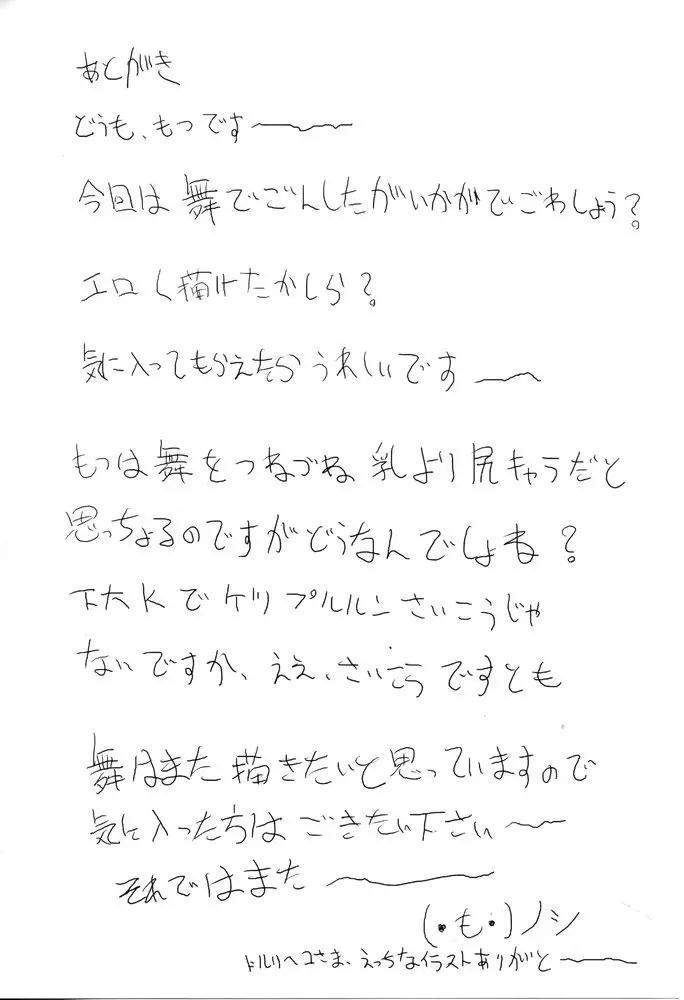 あとがき
どうも、もつです〜
今回は舞でごんしたがいかがでごわしょう?
エロく描けたかしら?
気に入ってもらえたらうれしいです〜
もつは舞をつねづね乳より尻キャラだと
思っちょるのですがどうなんでしょね?
下大Kでケツプルルンさいこうじゃ
ないですか、ええ、さいこうですとも
舞はまた描きたいと思っていますので
気に入った方はごきたい下さい〜
それではまた〜
(・も・)ノシ
さま、えっちなイラストありがと〜